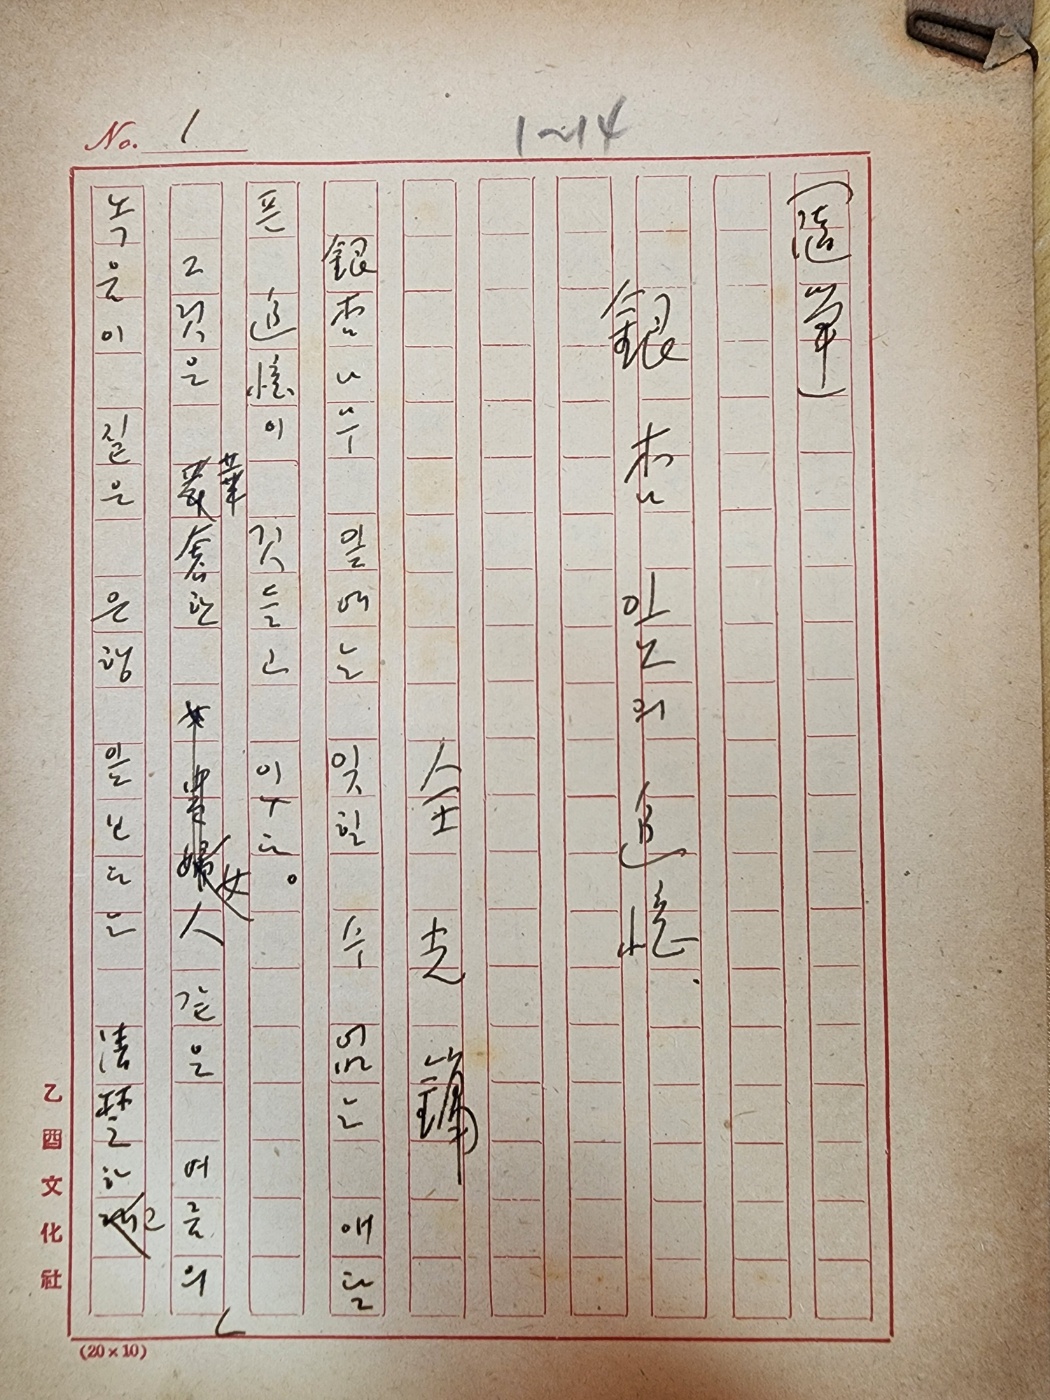 No. 1
1~14
(隨筆)
銀杏 의 追憶.
全光鏞
銀杏나무 잎에는 잊힐 수 없는 애달
픈 追憶이 깃들고 있다。
그것은 華奢한 女人 같은 여름의
녹음이 짙은 은행 잎보다는 清楚하
乙酉文化社
(20×10)